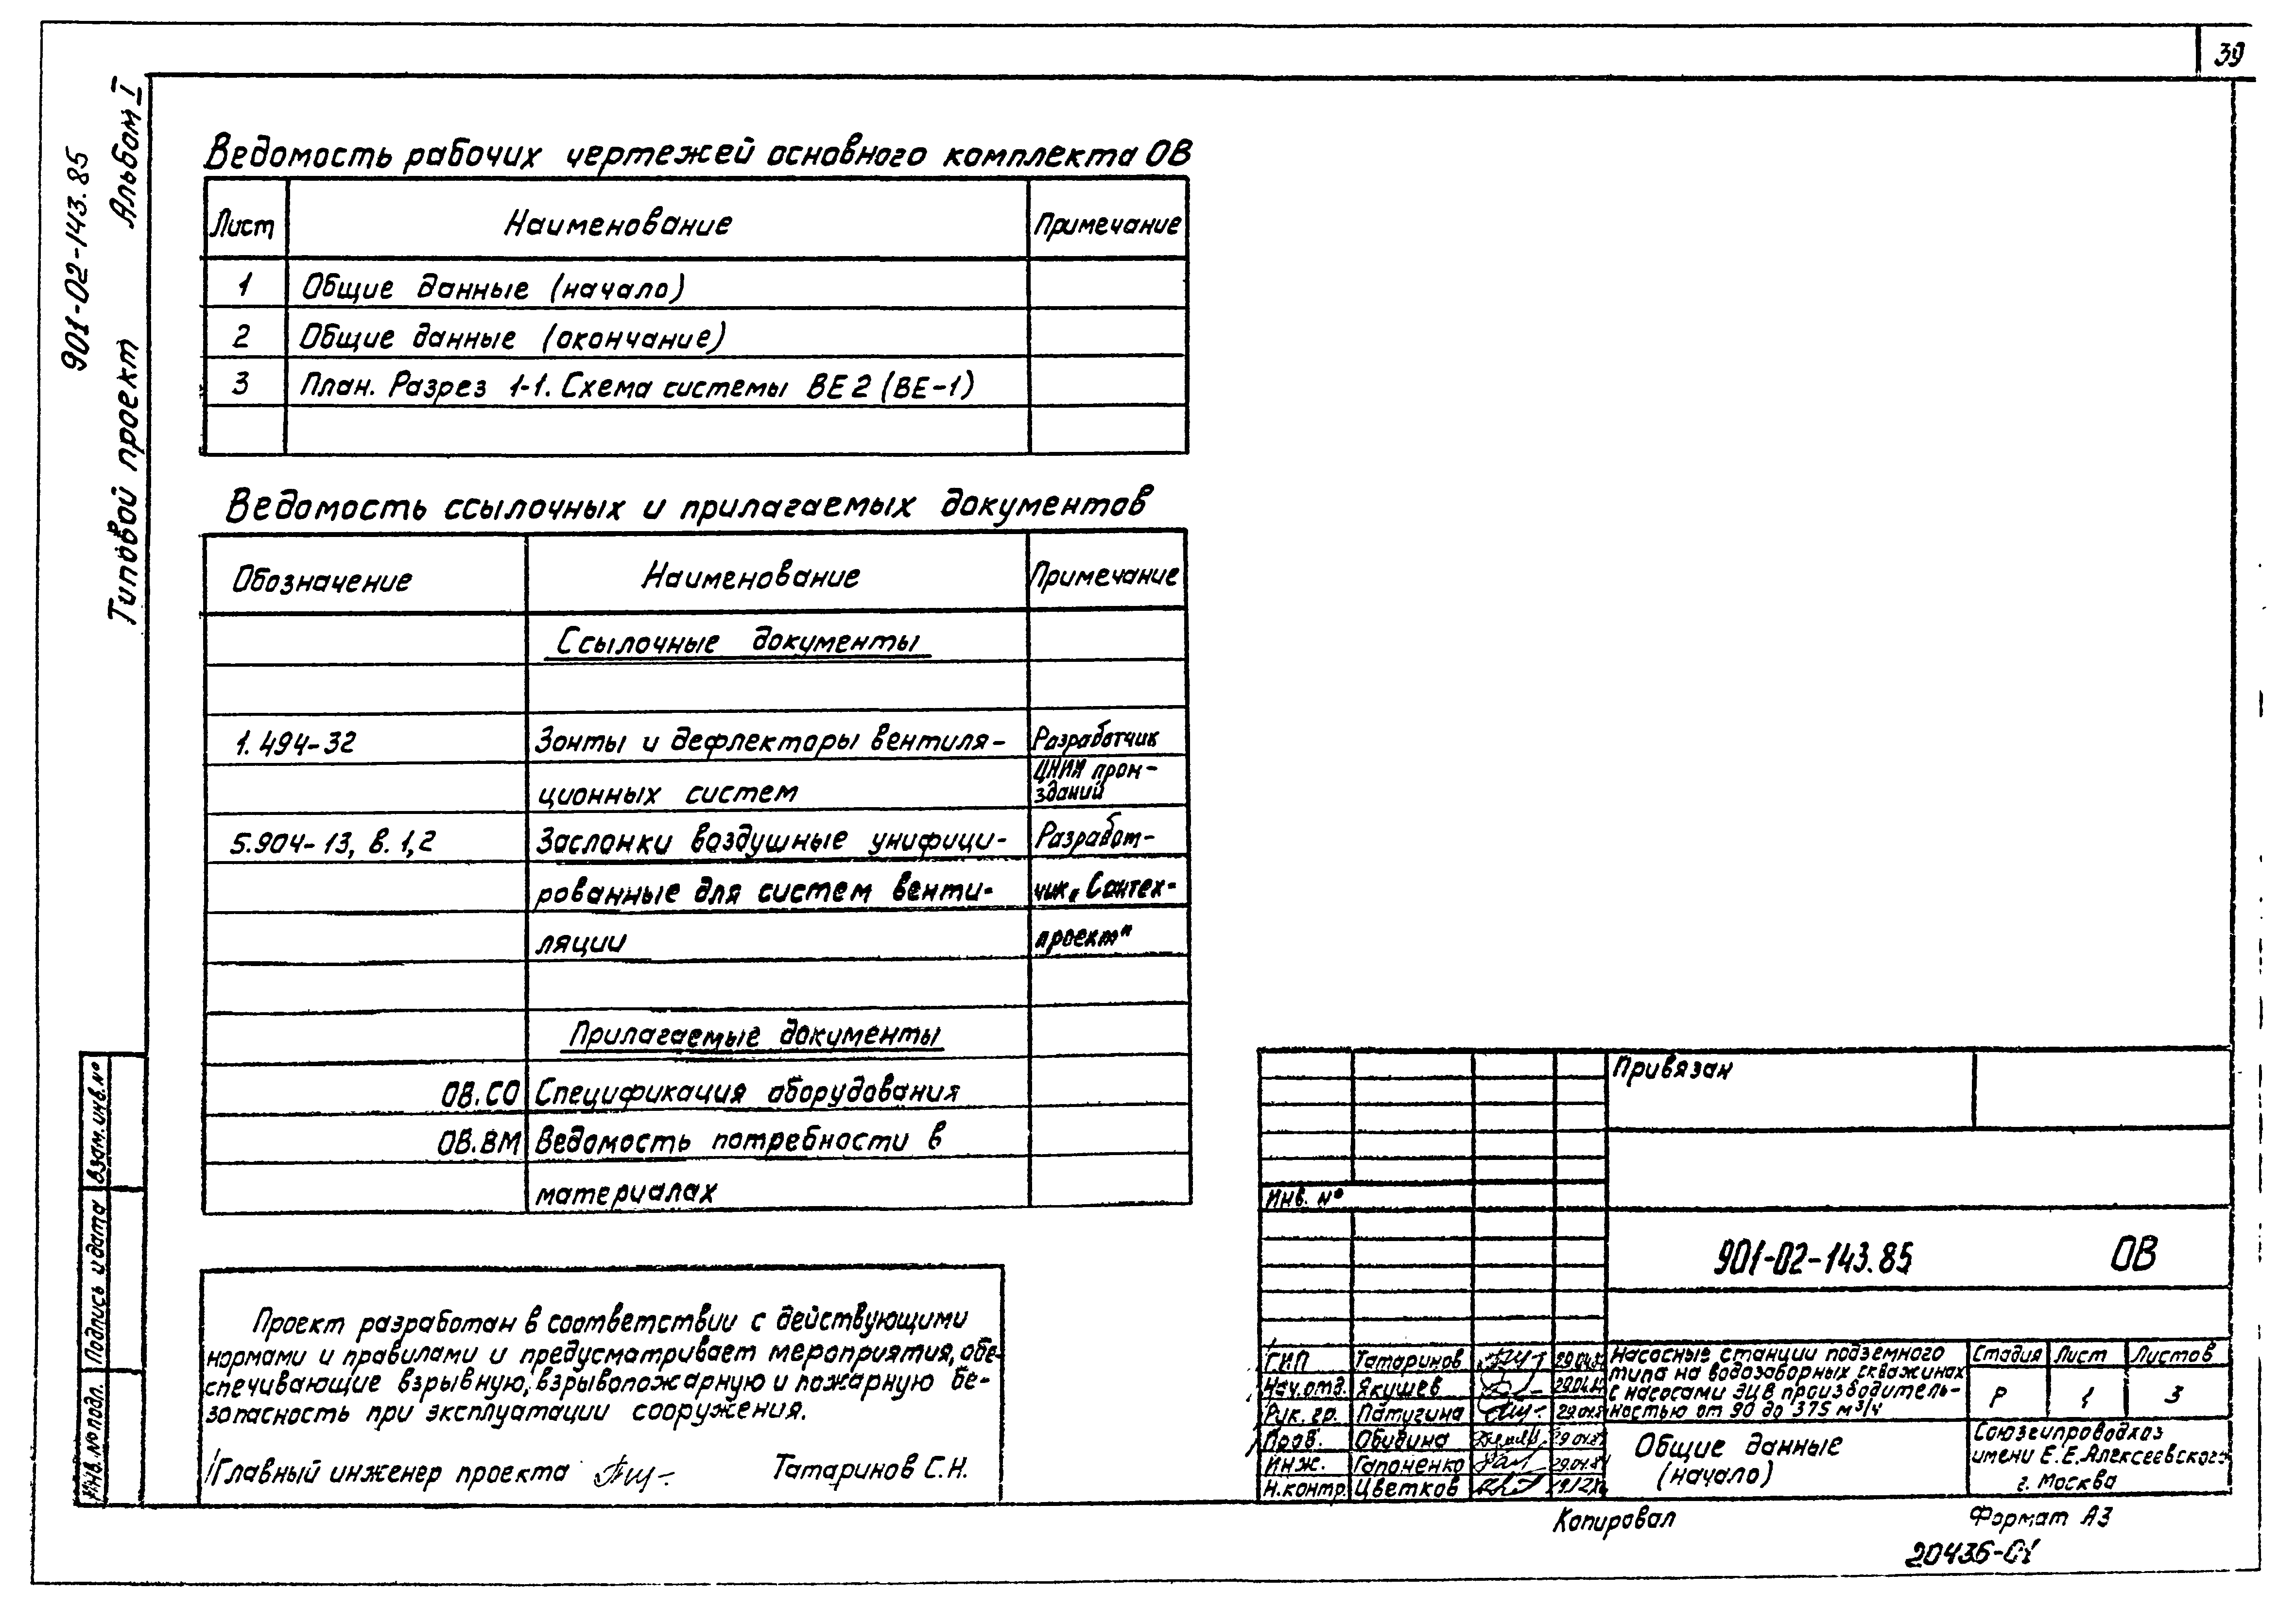 39
901-02-143.85
Типовой проект Альбом I
Ведомость рабочих чертежей основного комплекта ОВ
Лист Наименование Примечание
1 Общие данные (начало)
2 Общие данные (окончание)
3 План. Разрез 1-1. Схема системы ВЕ2 (ВЕ-1)
Ведомость ссылочных и прилагаемых документов
Обозначение Наименование Примечание
Ссылочные документы
1.494-32 Зонты и дефлекторы вентиля- Разработчик
ционных систем ЦНИИ пром-
зданий
5.904-13, в. 1,2 Заслонки воздушные унифици- Разработ-
рованные для систем венти- чик „Сантех-
ляции проект"
Прилагаемые документы
ОВ.СО Спецификация оборудования
ОВ.ВМ Ведомость потребности в
материалах
Проект разработан в соответствии с действующими
нормами и правилами и предусматривает мероприятия, обе-
спечивающие взрывную, взрывопожарную и пожарную бе-
зопасность при эксплуатации сооружения.
Главный инженер проекта Татаринов С.Н.
Взам. инв. №
Подпись и дата
Инв. № подл.
Привязан
Инв. №
901-02-143.85 ОВ
ГИП Татаринов
Нач. отд. Якушев
Рук. гр. Патугина
Пров. Обидина
Инж. Гапоненко
Н.контр. Цветков
Насосные станции подземного
типа на водозаборных скважинах
с насосами ЭЦВ производитель-
ностью от 90 до 375 м³/ч
Стадия Лист Листов
Р 1 3
Общие данные
(начало)
Союзгипроводхоз
имени Е.Е.Алексеевского
г. Москва
Копировал Формат А3
20436-01